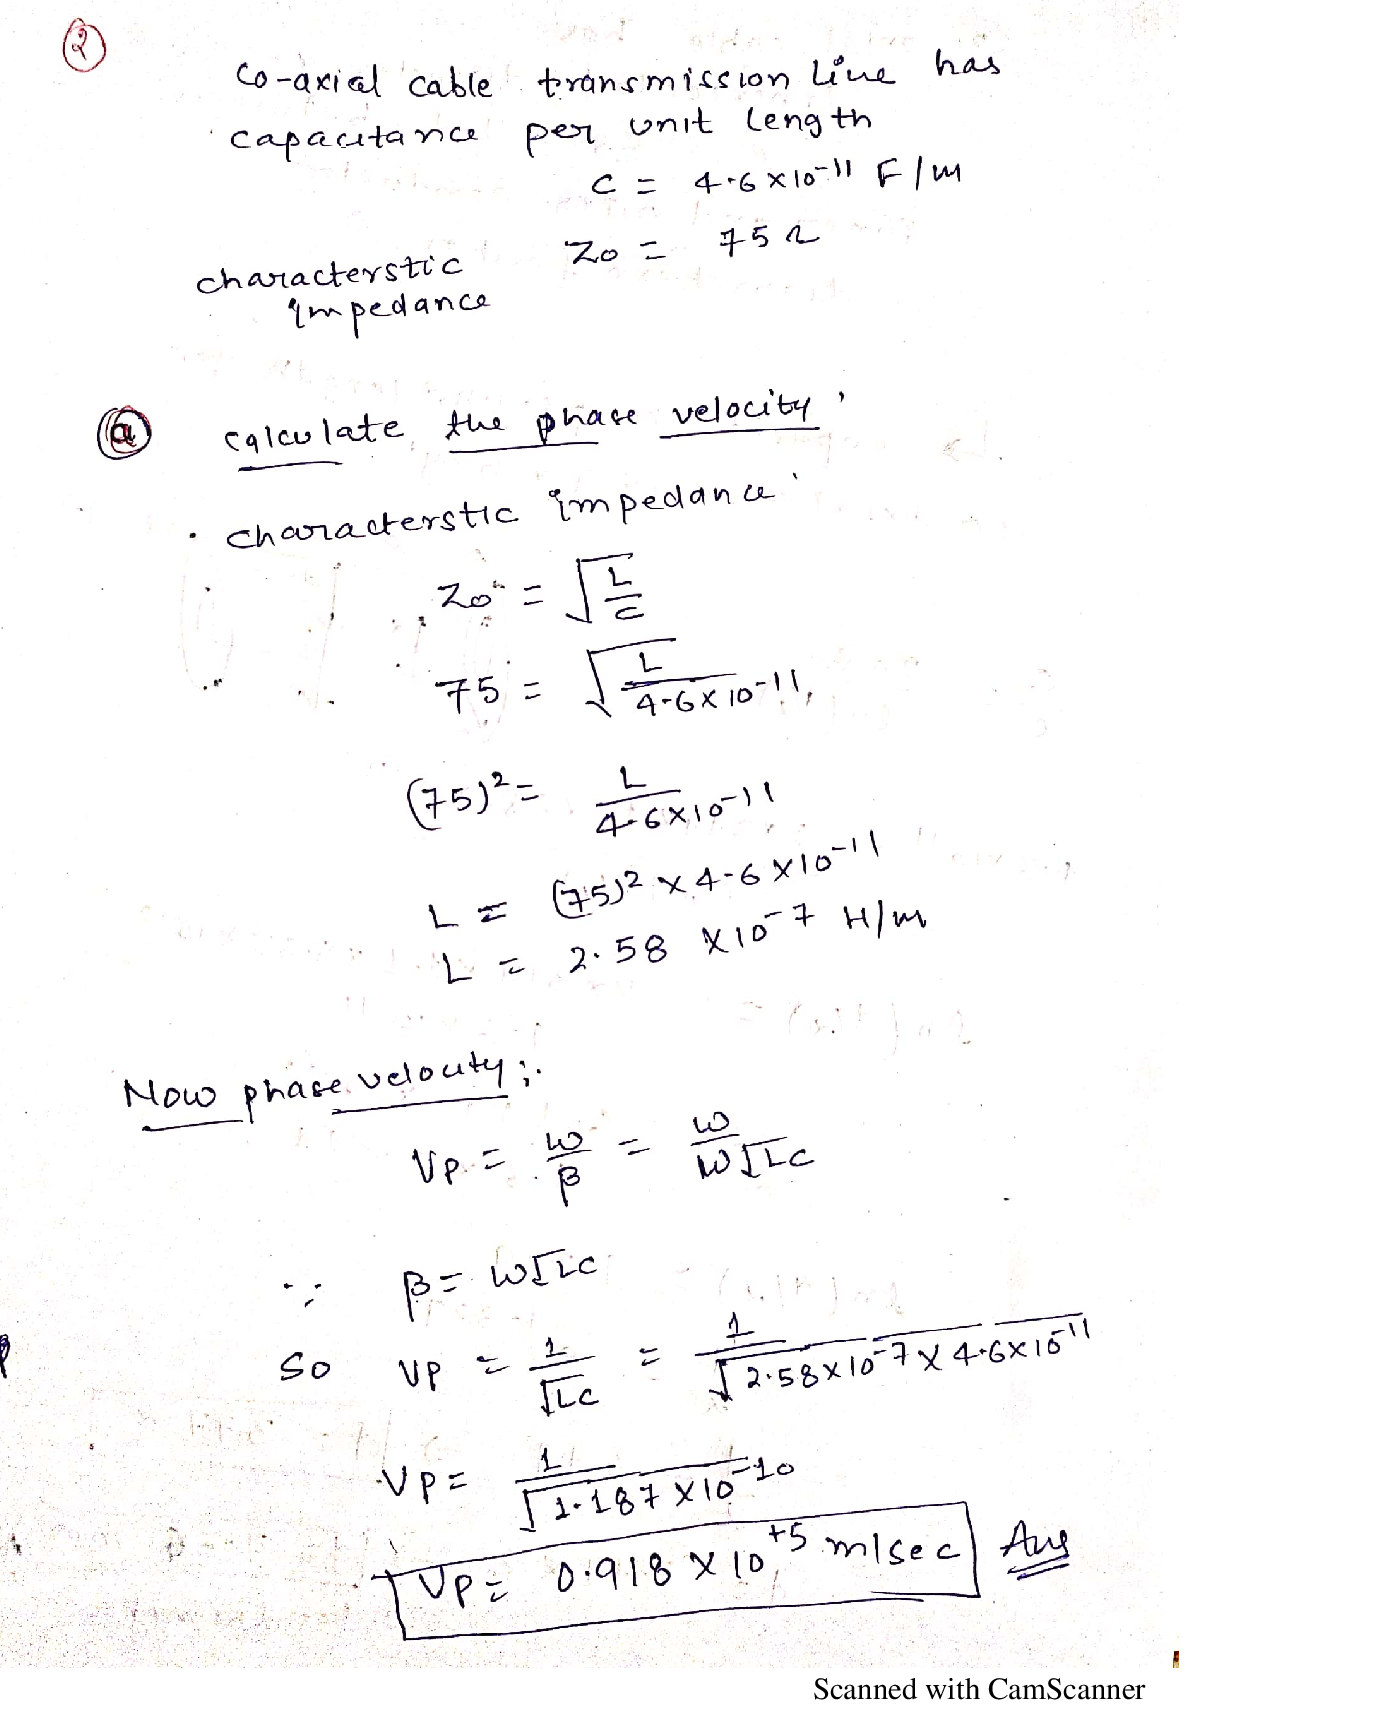 2
Co-axial cable transmission Line has
capacitance per unit length
C = 4.6 × 10^-11 F/m
characterstic Z0 = 75 Ω
impedance
(a) calculate the phase velocity
. characterstic impedance
Z0 = √(L/C)
75 = √(L/(4.6 × 10^-11))
(75)^2 = L/(4.6 × 10^-11)
L = (75)^2 × 4.6 × 10^-11
L = 2.58 × 10^-7 H/m
Now phase velocity ;.
Vp = ω/β = ω/(ω√LC)
∵ β = ω√LC
So Vp = 1/√LC = 1/√(2.58 × 10^-7 × 4.6 × 10^-11)
Vp = 1/√(1.187 × 10^-10)
Vp = 0.918 × 10^+5 m/sec Ans
Scanned with CamScanner